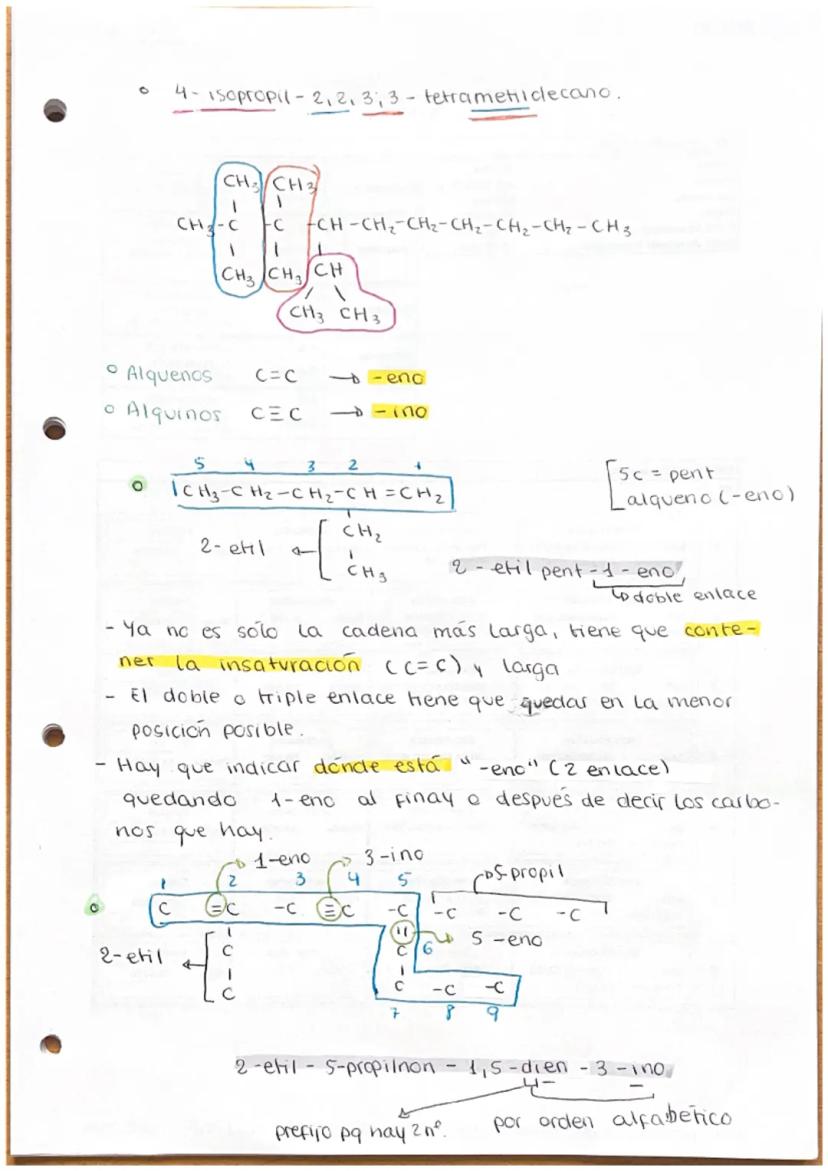 ° 4 - isopropil - 2, 2, 3, 3 - tetrametildecano.
CH3 CH3
| |
CH3 - C - C - CH - CH2 - CH2 - CH2 - CH2 - CH2 - CH3
| | |
CH3 CH3 CH
/ \
CH3 CH3
° Alquenos C=C → -eno
° Alquinos C≡C → -ino
5 4 3 2 1
° CH3 - CH2 - CH2 - CH = CH2
5c = pent
alqueno (-eno)
2 - etil ← CH2
|
CH3
2 - etil pent - 1 - eno
↳ doble enlace
- Ya no es sólo la cadena más larga, tiene que conte-
ner la insaturación (C=C) y larga
- El doble o triple enlace tiene que quedar en la menor
posición posible.
- Hay que indicar dónde está "-eno" (2 enlace)
quedando 1-eno al finay o después de decir los carbo-
nos que hay.
1-eno 3-ino
1 2 3 4 5 5-propil
° C =C -C ≡C -C -C -C -C
2-etil ← C = 5 -eno
| C 6
C |
C -C -C
7 8 9
2-etil - 5-propilnon - 1,5 -dien - 3 -ino
prefijo pq hay 2 nº. por orden alfabético